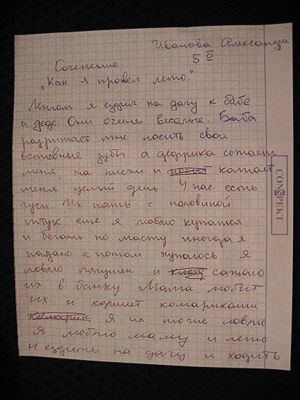 Иванова Александра
5 б
Сочинение
"Как я провел лето"
Летом я ездил на дачу к бабе
и деде. Они очень веселые. Баба
разришает мне насить свои
вставные зубы а дедушка сожает
меня на плечи и катает
меня целый день У нас есть
гуси. Их пять с половиной
штук еще я люблю купатся
и бегать по мосту иногда я
падаю а потом купаюсь Я
ловлю птицев и сажаю
их в банку Мама любит
их и кормит комариками
комарик Я их тоже ловлю
Я люблю маму и лето
и ездить на дачу и ходить
CONSPEKT